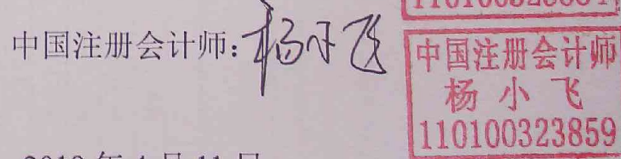 中国注册会计师:杨小飞
中国注册会计师
杨小飞
110100323859